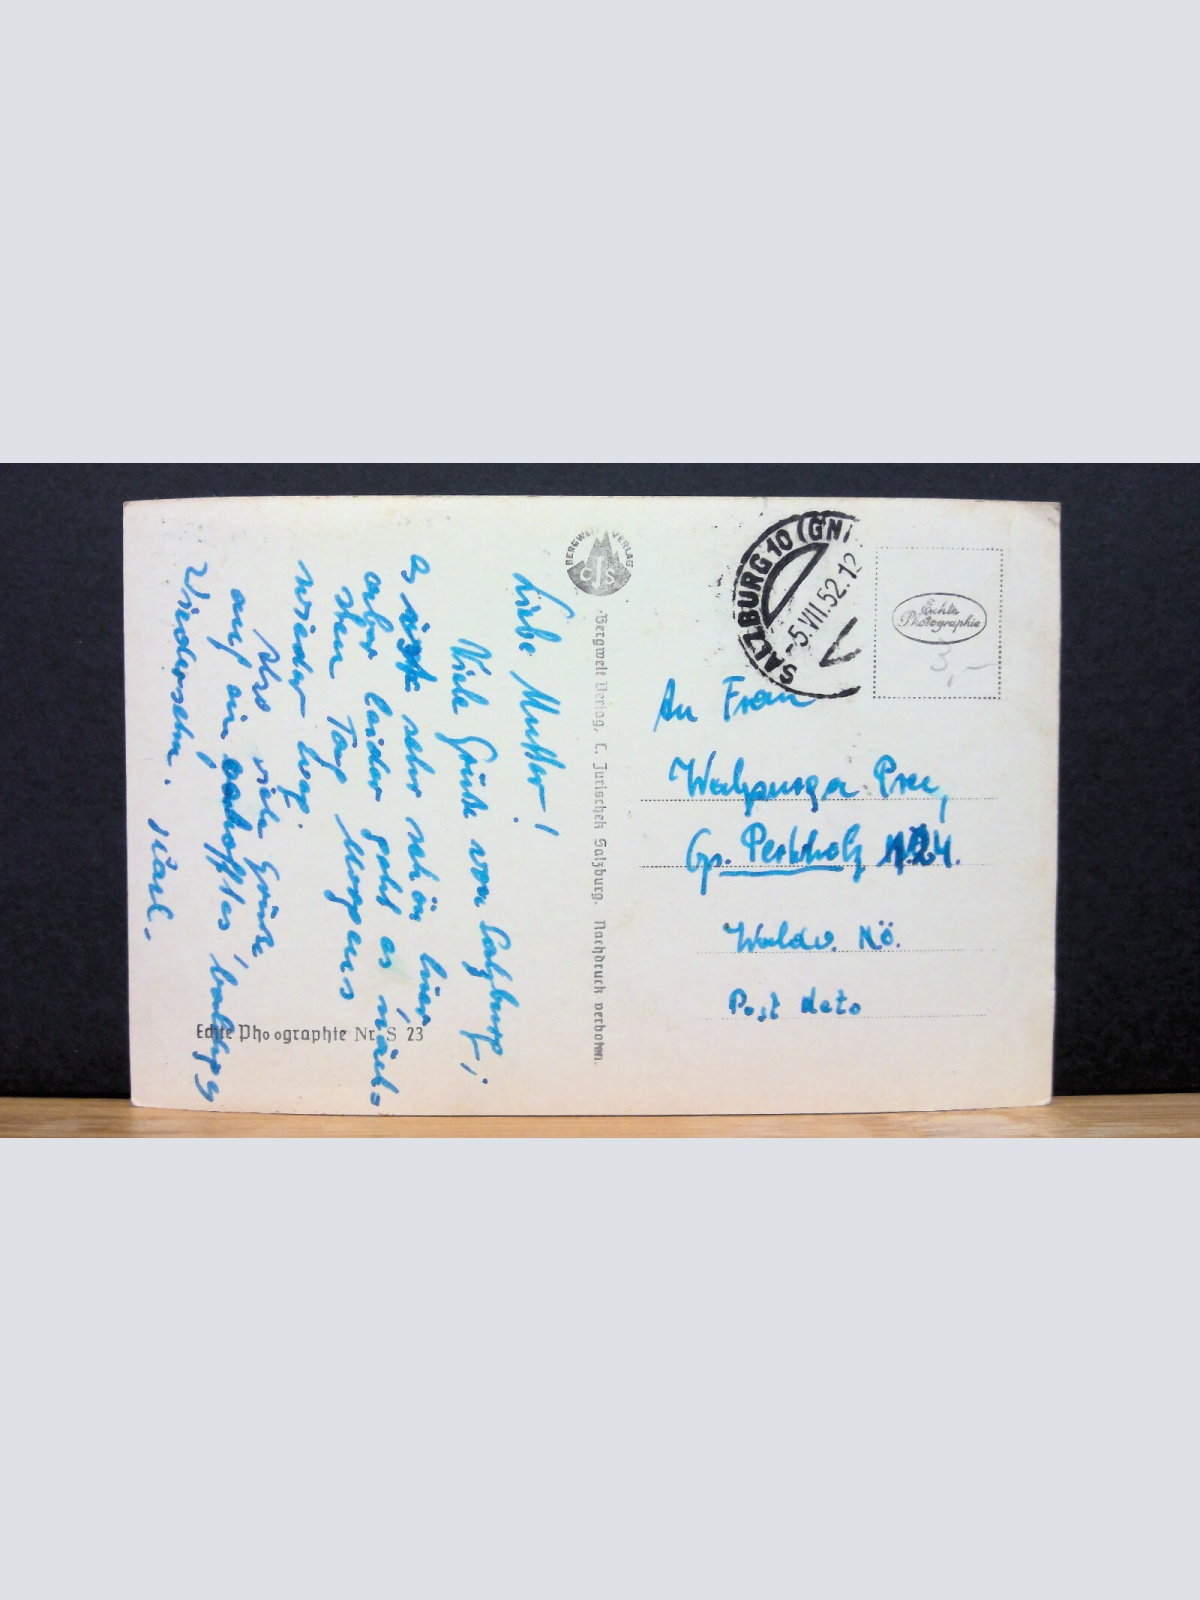 Liebe Mutter!
Viele Grüße von Salzburg,
es ist sehr schön hier
aber leider geht es näch=
sten Tag Morgens
wieder weg.
Also viele Grüße
auf ein baldiges
Wiedersehn. Karl.
BERGWELT VERLAG
CJS
Bergwelt Verlag, C. Jurischek Salzburg. Nachdruck verboten.
Echte Pho ographie Nr. S 23
SALZBURG 10 (GNI
-5.VII.52.12
Echte
Photographie
3,-
An Frau
Walpurga Prei,
Gp. Perkholz 24.
Waldv. NÖ.
Post